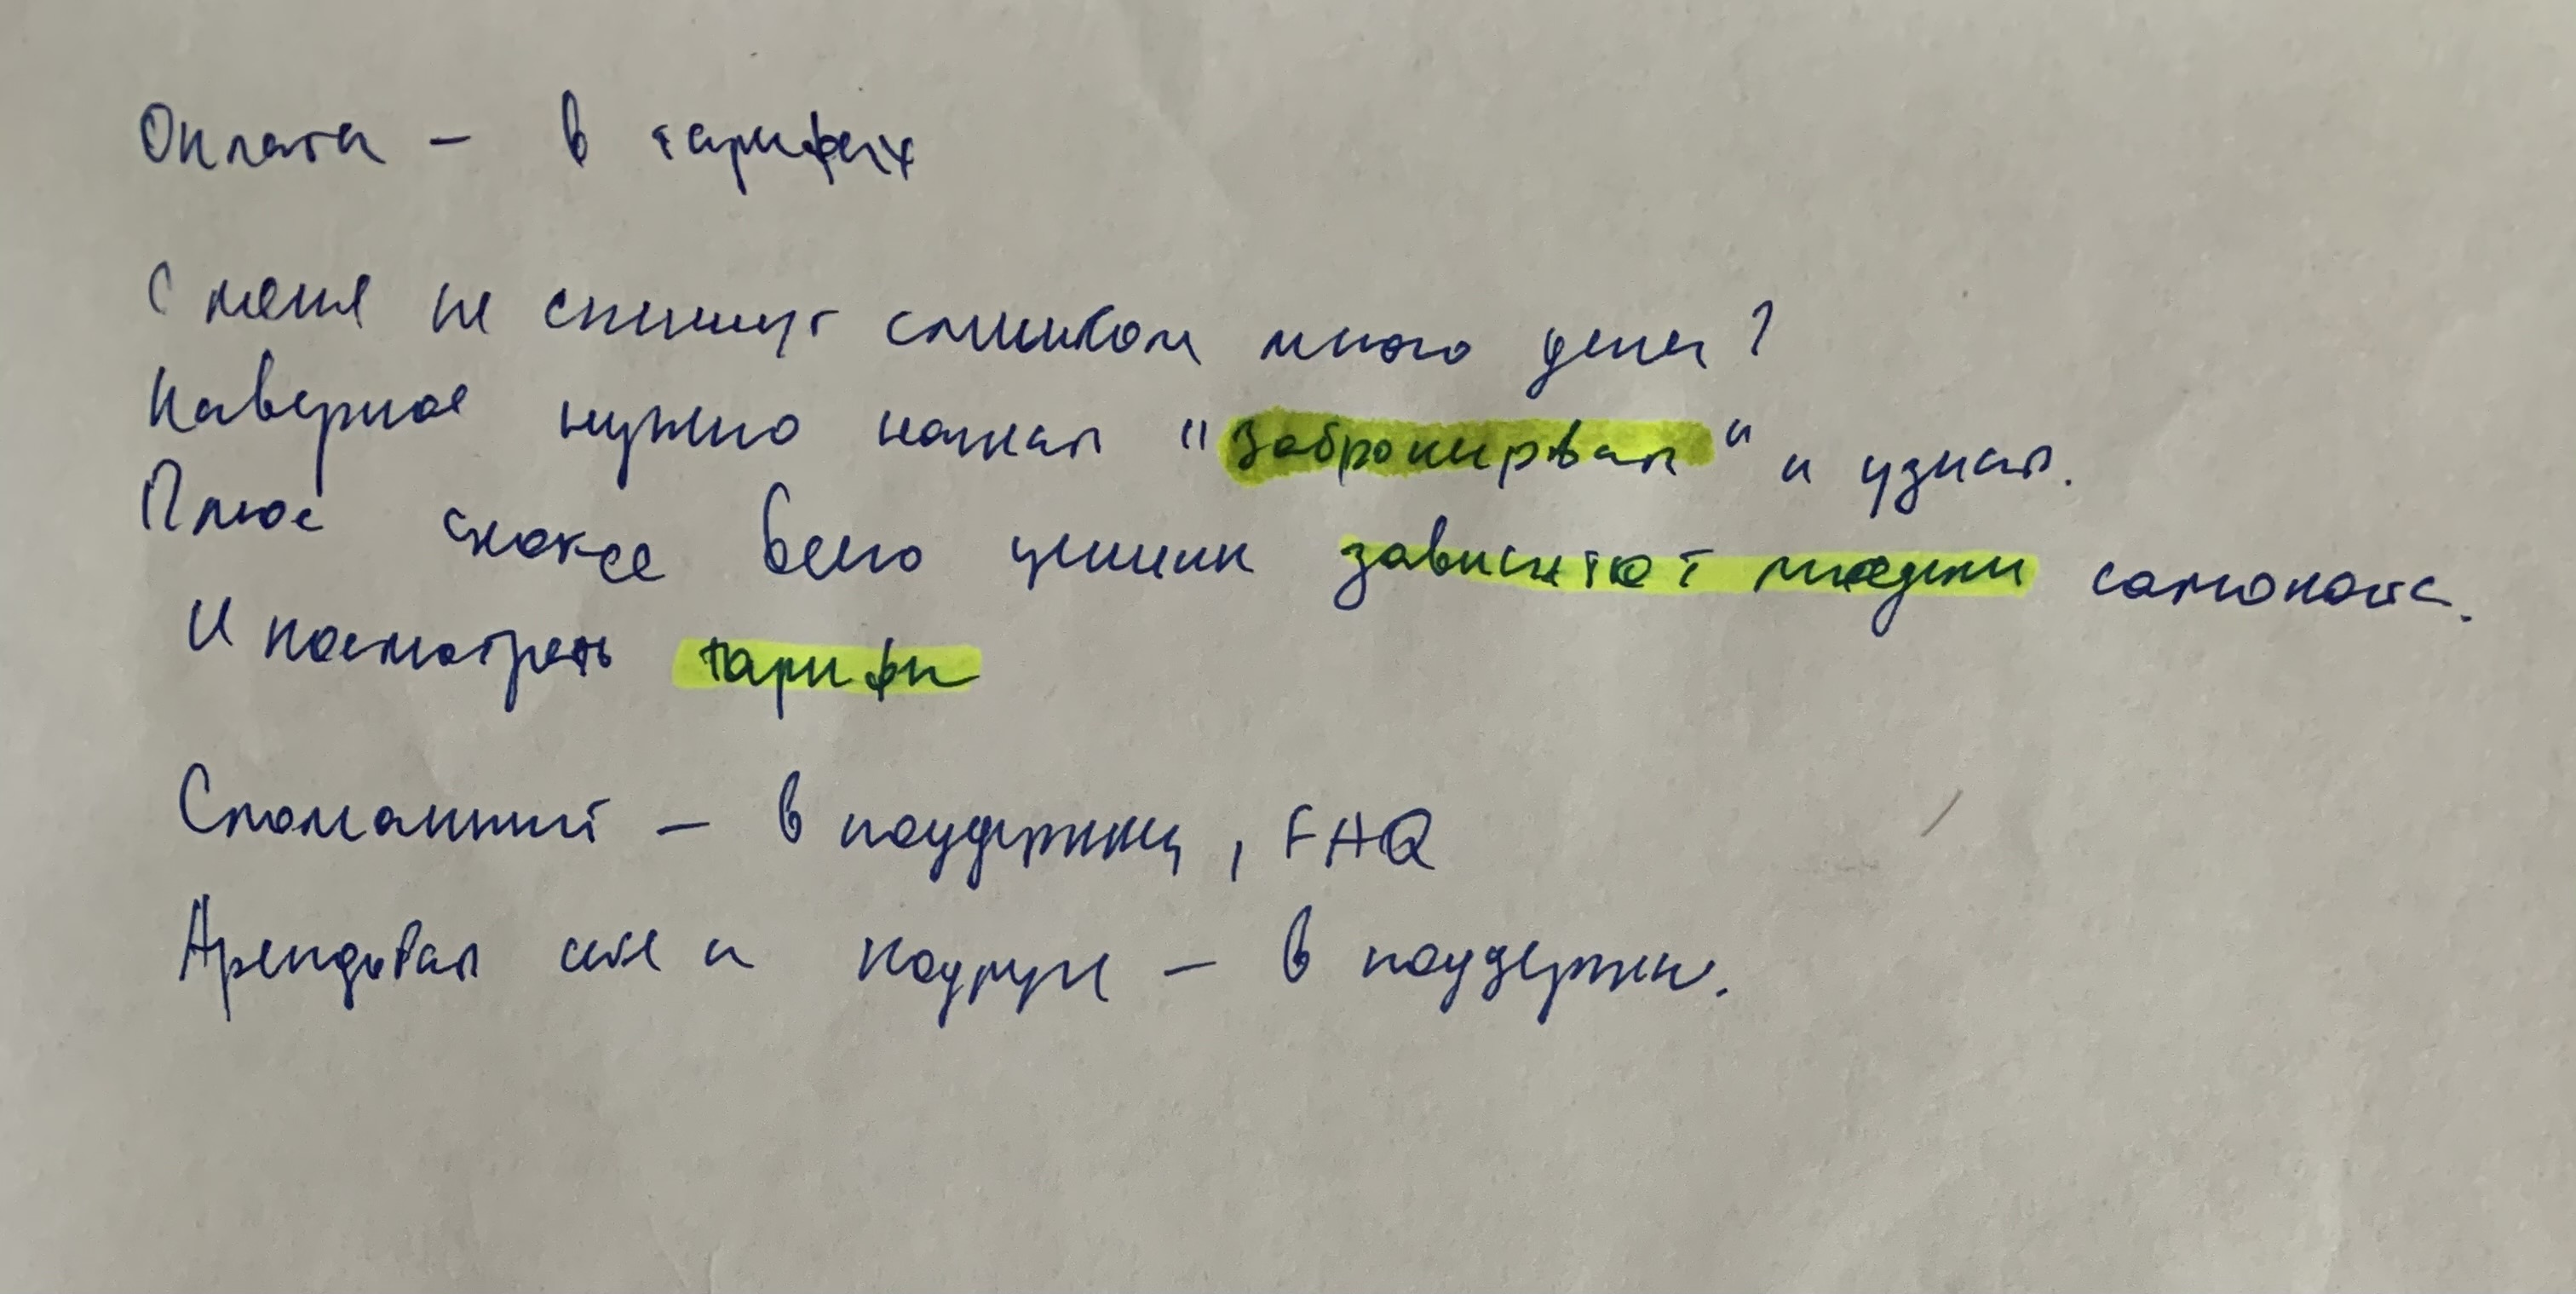 Оплата - в тарифах
С меня не спишут слишком много денег?
Наверное нужно нажать "Забронировать" и узнать.
Плюс скорее всего ценник зависит от модели самоката.
И посмотреть тарифы
Сломанный - в поддержку, FAQ
Арендовать себе и подруге - в поддержку.